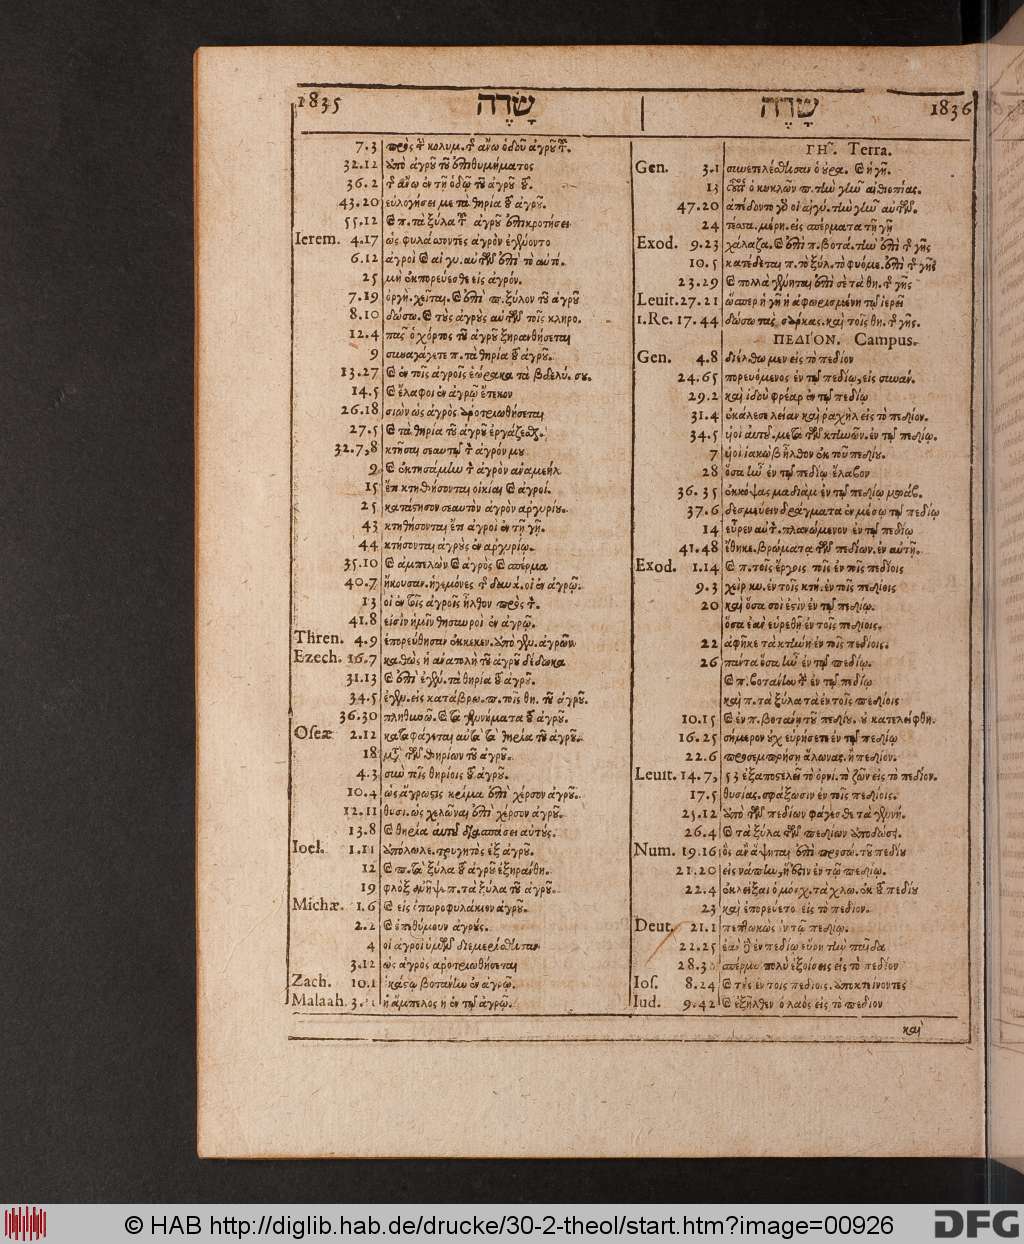 1835 שָׂדֶה
7.3 πρὸς τ κολυμ. τ ἄνω ὁδοῦ ἀγροῦ τ.
32.12 ὑπὸ ἀγροῦ τοῦ ἐπιθυμήματος
36.2 τ ἄνω ἐν τῇ ὁδῷ τοῦ ἀγροῦ τοῦ.
43.20 εὐλογήσει με τὰ θηρία τοῦ ἀγροῦ.
55.12 καὶ π. τὰ ξύλα τοῦ ἀγροῦ ἐπικροτήσει
Ierem. 4.17 ὡς φυλάσσοντες ἀγρὸν ἐγένοντο
6.12 ἀγροὶ καὶ αἱ γυ. αὐτῶν ἐπὶ τὸ αὐτό.
25 μὴ ἐκπορεύεσθε εἰς ἀγρόν.
7.19 ὀργὴ. χεῖται. καὶ ἐπὶ π. ξύλον τοῦ ἀγροῦ
8.10 δώσω. καὶ τοὺς ἀγροὺς αὐτῶν τοῖς κληρο.
12.4 πᾶς ὁ χόρτος τοῦ ἀγροῦ ξηρανθήσεται
9 συναγάγετε π. τὰ θηρία τοῦ ἀγροῦ.
13.27 καὶ ἐν τοῖς ἀγροῖς ἑώρακα τὰ βδελύ. σου.
14.5 καὶ ἔλαφοι ἐν ἀγρῷ ἔτεκον
26.18 σιὼν ὡς ἀγρὸς ἀροτριωθήσεται
27.5 καὶ τὰ θηρία τοῦ ἀγροῦ ἐργάζεσθ.
32.7,8 κτῆσαι σεαυτῷ τ ἀγρόν μου
9 καὶ ἐκτησάμην τ ἀγρὸν ἀναμεήλ
15 ἔτι κτηθήσονται οἰκίαι καὶ ἀγροί.
25 κατάστησον σεαυτὸν ἀγρὸν ἀργυρίου.
43 κτηθήσονται ἔτι ἀγροὶ ἐν τῇ γῇ.
44 κτήσονται ἀγροὺς ἐν ἀργυρίῳ.
35.10 καὶ ἀμπελὼν καὶ ἀγρὸς καὶ σπέρμα
40.7 ἤκουσαν. ἡγεμόνες τ δυνά. οἱ ἐν ἀγρῷ.
13 οἱ ἐν τοῖς ἀγροῖς ἦλθον πρὸς τ.
41.8 εἰσὶν ἡμῖν θησαυροὶ ἐν ἀγρῷ.
Thren. 4.9 ἐπορεύθησαν ἐκκεκεν. ὑπὸ γεν. ἀγρῶν
Ezech. 16.7 καθὼς ἡ ἀνατολὴ τοῦ ἀγροῦ δέδωκα
31.13 καὶ ἐπὶ ἐγέν. τὰ θηρία τοῦ ἀγροῦ.
34.5 ἐγέν. εἰς κατάβρω. π. τοῖς θη. τοῦ ἀγροῦ.
36.30 πληθυνῶ. καὶ τὰ γεννήματα τοῦ ἀγροῦ.
Oseæ 2.12 καταφάγεται αὐτὰ τὰ θηρία τοῦ ἀγροῦ.
18 μετὰ τῶν θηρίων τοῦ ἀγροῦ.
4.3 σὺν τοῖς θηρίοις τοῦ ἀγροῦ.
10.4 ὡς ἄγρωστις κρίμα ἐπὶ χέρσον ἀγροῦ.
12.11 θυσι. ὡς χελῶναι ἐπὶ χέρσον ἀγροῦ.
13.8 καὶ θηρία ἀγροῦ διασπάσει αὐτούς.
Ioel. 1.11 ἀπόλωλε. τρυγητὸς ἐξ ἀγροῦ.
12 καὶ π. τὰ ξύλα τοῦ ἀγροῦ ἐξηράνθη.
19 φλὸξ ἀνῆψε π. τὰ ξύλα τοῦ ἀγροῦ.
Michæ. 1.6 καὶ εἰς ὀπωροφυλάκιον ἀγροῦ.
2.2 καὶ ἐπεθύμουν ἀγρούς.
4 οἱ ἀγροὶ ὑμῶν διεμερίσθησαν
3.12 ὡς ἀγρὸς ἀροτριωθήσεται
Zach. 10.1 ἑκάστῳ βοτάνην ἐν ἀγρῷ.
Malaah. 3.11 ἡ ἄμπελος ἡ ἐν τῷ ἀγρῷ.
שָׂדֶה 1836
ΓΗ῀. Terra.
Gen. 3.1 συνετελέσθησαν ὁ οὐρα. καὶ ἡ γῆ.
13 οὗτος ὁ κυκλῶν π. τὴν γῆν αἰθιοπίας.
47.20 ἀπέδοντο γὰρ οἱ αἰγύ. τὴν γῆν αὐτῶν.
24 τέσσα. μέρη. εἰς σπέρματα τῇ γῇ
Exod. 9.23 χάλαζα. καὶ ἐπὶ π. βοτά. τὴν ἐπὶ τ γῆς
10.5 κατέδεται π. τὸ ξύλ. τὸ φυόμε. ἐπὶ τ γῆς
23.29 καὶ πολλὰ γένηται ἐπὶ σὲ τὰ θη. τ γῆς
Leuit. 27.21 ὥσπερ ἡ γῆ ἡ ἀφωρισμένη τῷ ἱερεῖ
1.Re. 17.44 δώσω τὰς σάρκας. καὶ τοῖς θη. τ γῆς.
ΠΕΔΙ῀ΟΝ. Campus.
Gen. 4.8 διέλθωμεν εἰς τὸ πεδίον
24.65 πορευόμενος ἐν τῷ πεδίῳ, εἰς συνάν.
29.2 καὶ ἰδοὺ φρέαρ ἐν τῷ πεδίῳ
31.4 ἐκάλεσε λείαν καὶ ῥαχὴλ εἰς τὸ πεδίον.
34.5 υἱοὶ αὐτοῦ. μετὰ τῶν κτηνῶν. ἐν τῷ πεδίῳ.
7 υἱοὶ ἰακὼβ ἦλθον ἐκ τοῦ πεδίου.
28 ὅσα ἦν ἐν τῷ πεδίῳ ἔλαβον
36.35 ἐκκόψας μαδιὰμ ἐν τῷ πεδίῳ μωάβ.
37.6 δεσμεύειν δράγματα ἐν μέσῳ τῷ πεδίῳ
14 εὗρεν αὐτ. πλανώμενον ἐν τῷ πεδίῳ
41.48 ἔθηκε. βρώματα τῶν πεδίων. ἐν αὐτῇ.
Exod. 1.14 καὶ π. τοῖς ἔργοις τοῖς ἐν τοῖς πεδίοις
9.3 χεὶρ κυ. ἐν τοῖς κτή. ἐν τοῖς πεδίοις
20 καὶ ὅσα σοί ἐστιν ἐν τῷ πεδίῳ.
ὅσα ἐὰν εὑρεθῇ ἐν τοῖς πεδίοις.
22 ἀφῆκε τὰ κτήνη ἐν τοῖς πεδίοις.
26 πάντα ὅσα ἦν ἐν τῷ πεδίῳ.
καὶ π. βοτάνην τ ἐν τῷ πεδίῳ
καὶ π. τὰ ξύλα τὰ ἐν τοῖς πεδίοις
10.15 καὶ ἐν π. βοτάνῃ τοῦ πεδίου. οὐ κατελείφθη.
16.25 σήμερον οὐχ εὑρήσετε ἐν τῷ πεδίῳ
22.6 προσεμπρήσῃ ἅλωνας. ἢ πεδίον.
Leuit. 14.7, 53 ἐξαποστελεῖ τὸ ὀρνί. τὸ ζῶν εἰς τὸ πεδίον.
17.5 θυσίας. σφάξωσιν ἐν τοῖς πεδίοις.
25.12 ἀπὸ τῶν πεδίων φάγεσθε τὰ γεννή.
26.4 καὶ τὰ ξύλα τῶν πεδίων ἀποδώσει.
Num. 19.16 ὃς ἂν ἅψηται ἐπὶ προσώ. τοῦ πεδίου
21.20 εἰς νάπην, ἥ ἐστιν ἐν τῷ πεδίῳ.
22.4 ἐκλείξαι ὁ μόσχ. τὰ χλω. ἐκ τοῦ πεδίου
23 καὶ ἐπορεύετο εἰς τὸ πεδίον.
Deut. 21.1 πεπτωκὼς ἐν τῷ πεδίῳ.
22.25 ἐὰν δὲ ἐν πεδίῳ εὕρῃ τὴν παῖδα
28.3 σπέρμα πολὺ ἐξοίσεις εἰς τὸ πεδίον
Ios. 8.24 καὶ τοὺς ἐν τοῖς πεδίοις. ἀποκτείνοντες
Iud. 9.42 καὶ ἐξῆλθεν ὁ λαὸς εἰς τὸ πεδίον
καὶ
© HAB http://diglib.hab.de/drucke/30-2-theol/start.htm?image=00926
DFG